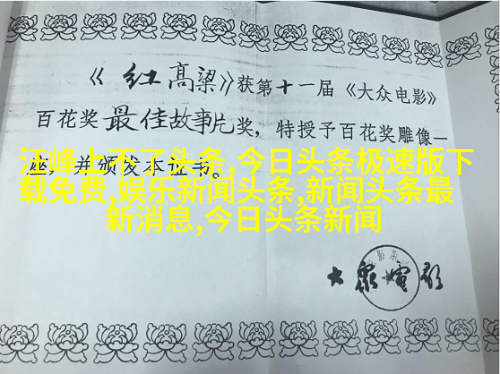 《红高粱》获第十一届《大众电影》
百花奖最佳故事片奖，特授予百花奖雕像一
座，并颁发本证书。
汪峰上不了头条,今日头条极速版下
载免费,娱乐新闻头条,新闻头条最
新消息,今日头条新闻
大眾電影